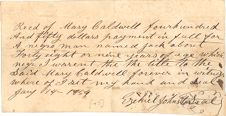 Recd of Mary Caldwell four hundred
And fifty dollars payment in full for
A negro man named Jack about
forty eight or nine years of age which
negro I warent the the title to the
Said Mary Caldwell forever in witness
where of I set my hand and Seal
Jany 14 1859
Ezekiel Johnston Seal